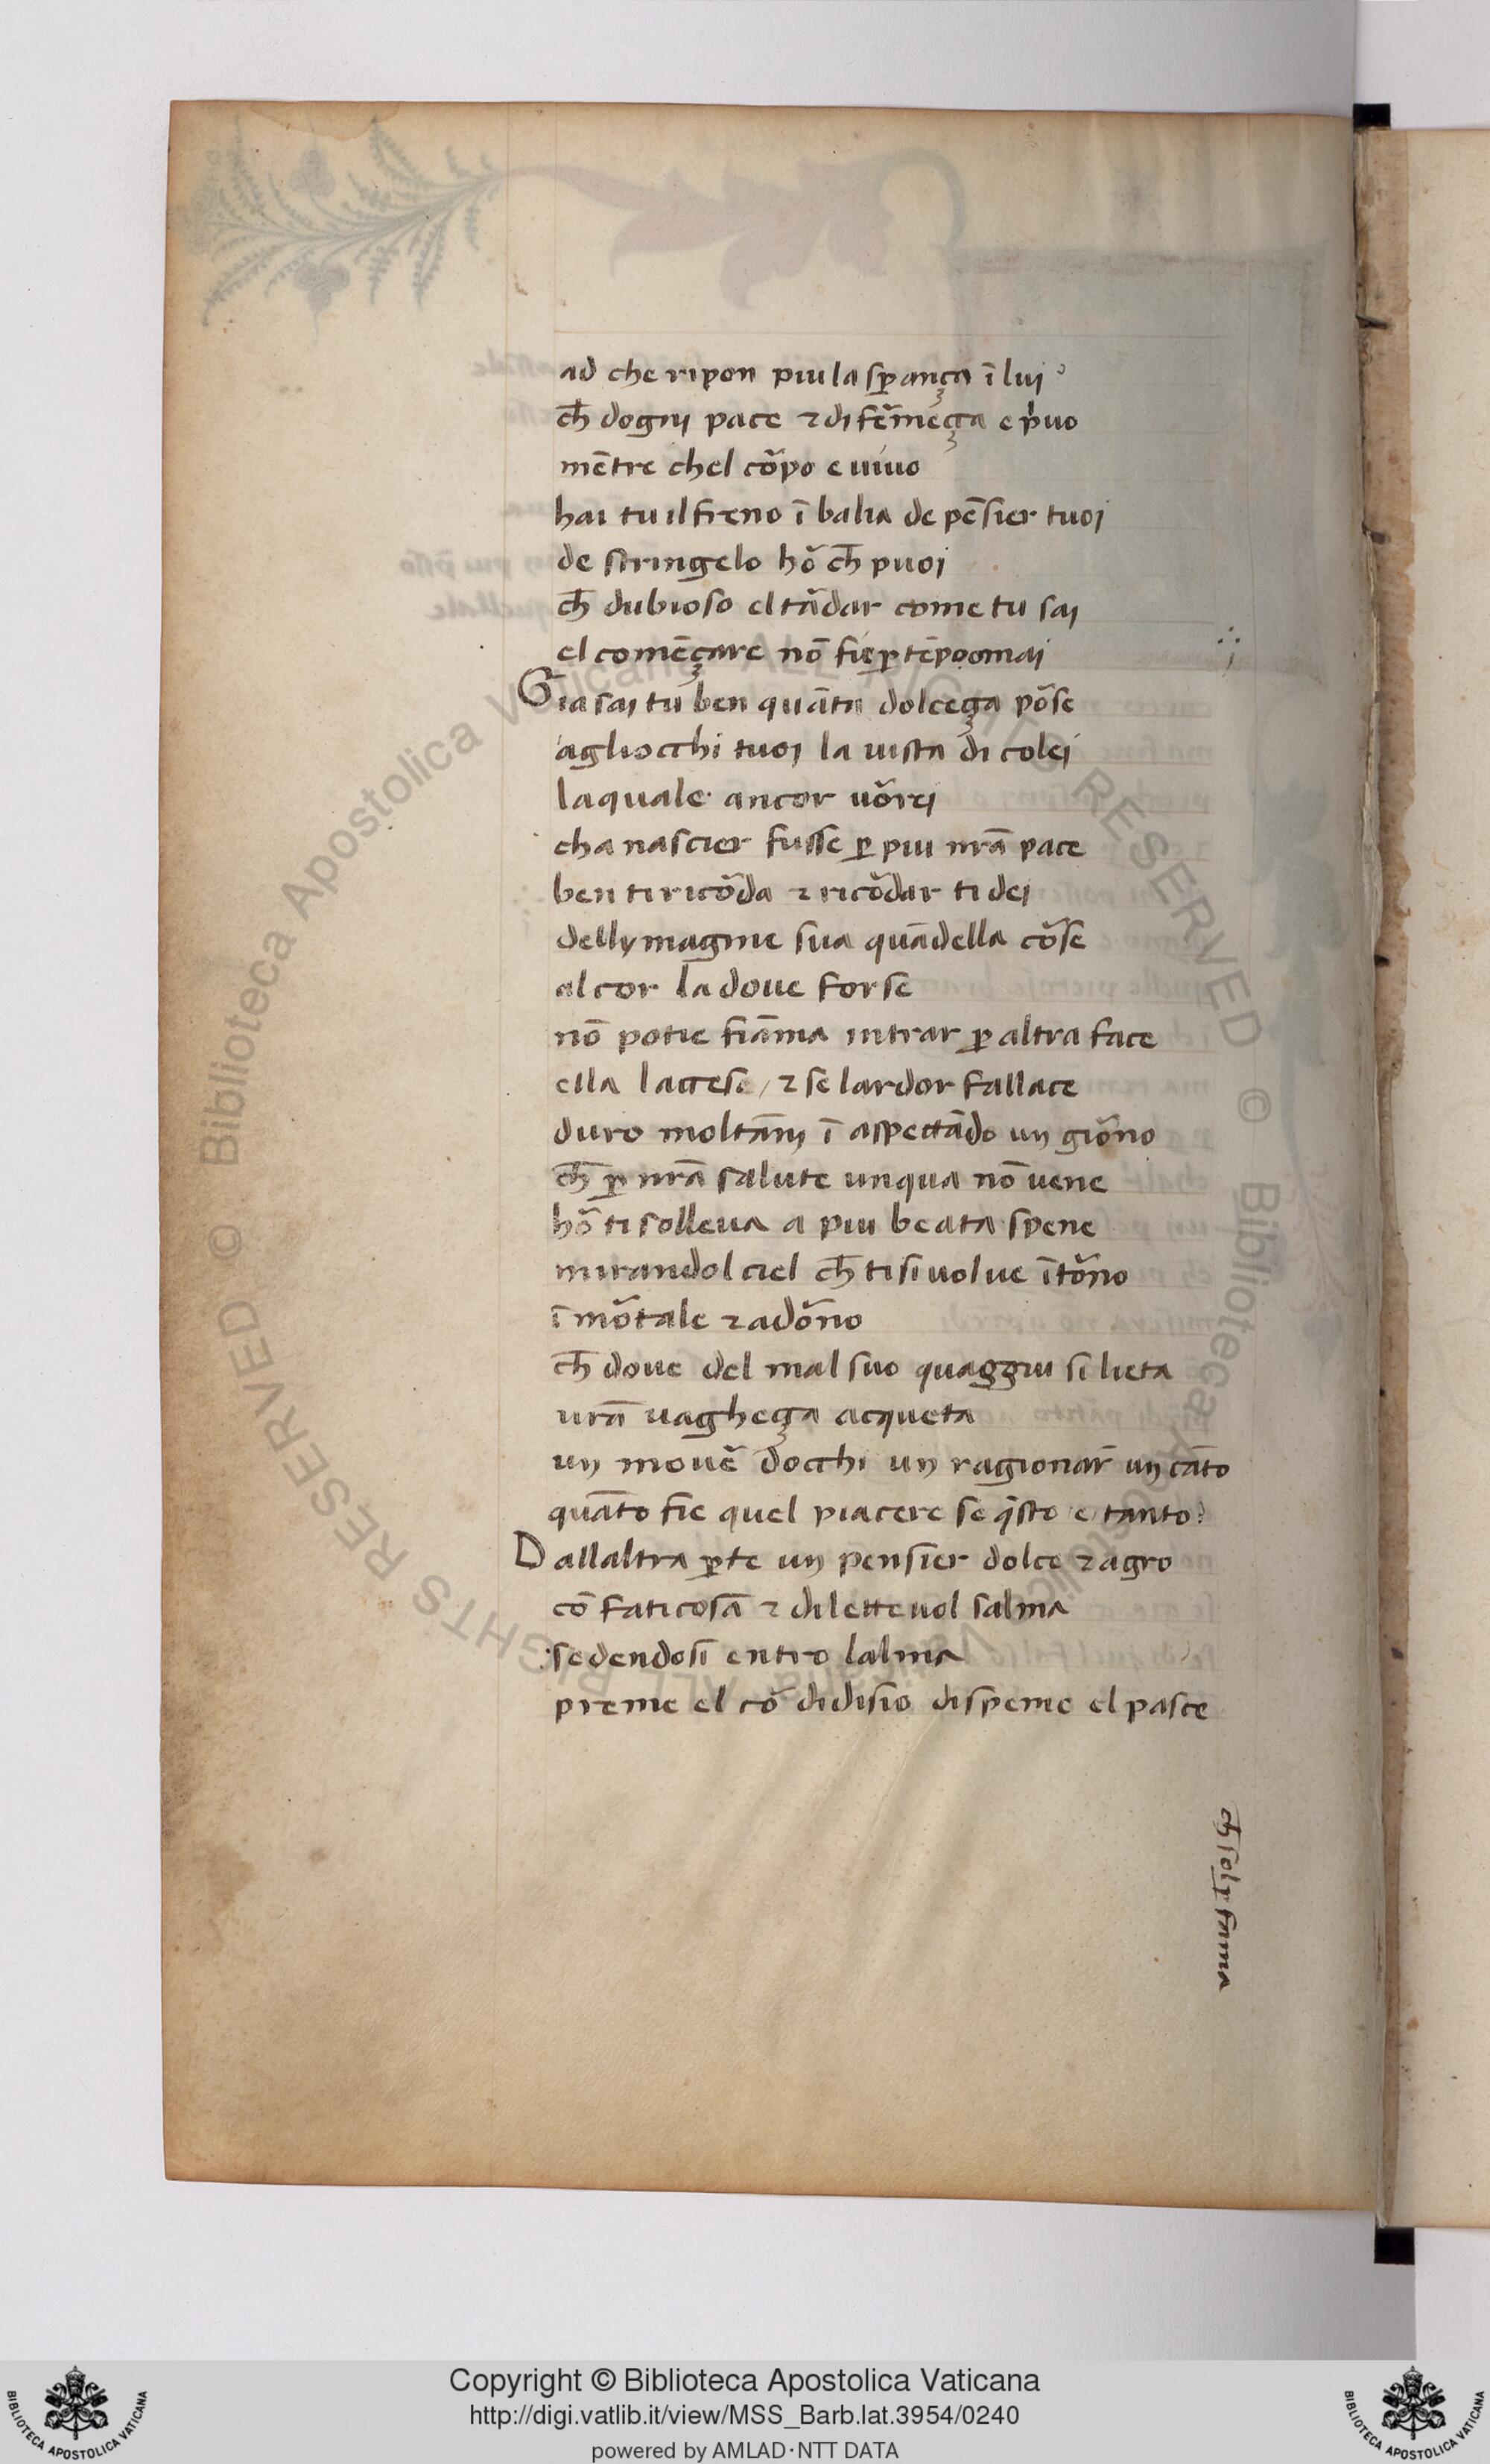 ad che ripon piu la sp̱ança ī lui?
ch̄ dogni pace ⁊ di fēmeçça e p̍uo
mētre chel cōpo e uiuo
hai tu il freno ī balia de pēsier tuoi
de stringelo hō ch̄ puoi
ch̄ dubioso el tādar come tu sai
el comēçare nō fie p̱ tēpo omai
Gia sai tu ben quāta dolceça pōse
agliocchi tuoi la uista di colei
laquale ancor uōrei
cha nascier fusse p̱ piu nr̄a pace
ben ti ricōda ⁊ ricōdar ti dei
dellymagine sua quādella cōse
al cor la doue forse
nō potie fiāma intrar p̱ altra face
ella laccese / ⁊ se lardor fallace
duro moltāni ī aspectādo un giōno
ch̄ p̱ nr̄a salute unqua nō uene
hō ti solleua a piu beata spene
mirandol ciel ch̄ ti si uolue ītōno
īmōtale ⁊ adōno
ch̄ doue del mal suo quaggiu si lieta
ur̄a uagheça acqueta
un mouē docchi un ragionar̄ un cāto
quāto fie quel piacere se q̄sto e tanto?
Dallaltra p̱te un pensier dolce ⁊ agro
cō faticosā ⁊ diletteuol salma
sedendosi entro lalma
preme el cō di disio di speme el pasce
ch̄ sol p̱ fama
Copyright © Biblioteca Apostolica Vaticana
http://digi.vatlib.it/view/MSS_Barb.lat.3954/0240
powered by AMLAD·NTT DATA
BIBLIOTECA APOSTOLICA VATICANA
BIBLIOTECA APOSTOLICA VATICANA
© Biblioteca Apostolica Vaticana ALL RIGHTS RESERVED © Biblioteca Apostolica Vaticana ALL RIGHTS RESERVED